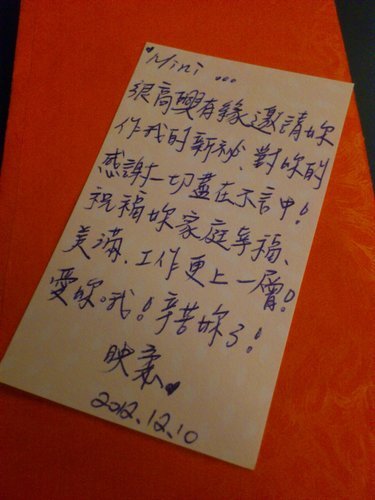 Mini ...
很高興有緣邀請妳
作我的新祕、對妳的
感謝一切盡在不言中!
祝福妳家庭幸福、
美滿、工作更上一層!
愛妳。我!辛苦妳了!
映柔
2012.12.10